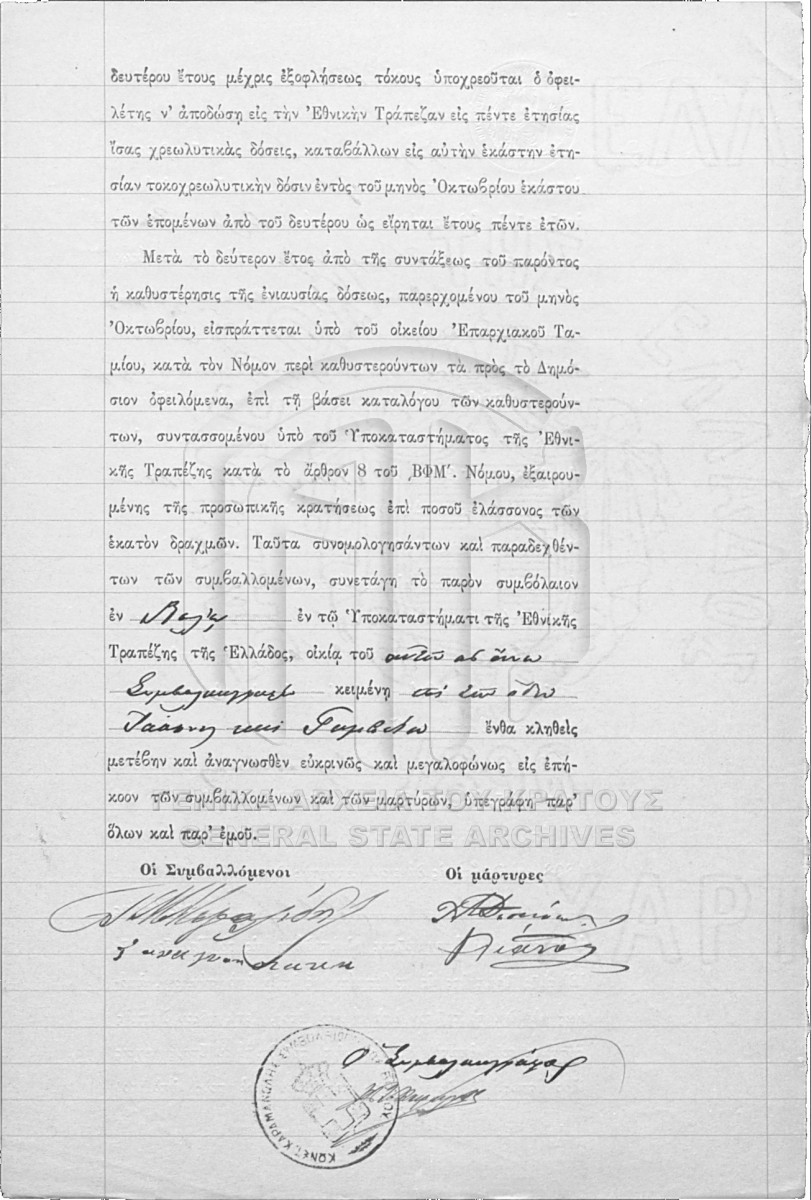 δευτέρου ἔτους μέχρις ἐξοφλήσεως τόκους ὑποχρεοῦται ὁ ὀφει-
λέτης ν' ἀποδώσῃ εἰς τὴν Ἐθνικὴν Τράπεζαν εἰς πέντε ἐτησίας
ἴσας χρεωλυτικὰς δόσεις, καταβάλλων εἰς αὐτὴν ἑκάστην ἐτη-
σίαν τοκοχρεωλυτικὴν δόσιν ἐντὸς τοῦ μηνὸς Ὀκτωβρίου ἑκάστου
τῶν ἑπομένων ἀπὸ τοῦ δευτέρου ὡς εἴρηται ἔτους πέντε ἐτῶν.
Μετὰ τὸ δεύτερον ἔτος ἀπὸ τῆς συντάξεως τοῦ παρόντος
ἡ καθυστέρησις τῆς ἐνιαυσίας δόσεως, παρερχομένου τοῦ μηνὸς
Ὀκτωβρίου, εἰσπράττεται ὑπὸ τοῦ οἰκείου Ἐπαρχιακοῦ Τα-
μίου, κατὰ τὸν Νόμον περὶ καθυστερούντων τὰ πρὸς τὸ Δημό-
σιον ὀφειλόμενα, ἐπὶ τῇ βάσει καταλόγου τῶν καθυστερούν-
των, συντασσομένου ὑπὸ τοῦ Ὑποκαταστήματος τῆς Ἐθνι-
κῆς Τραπέζης κατὰ τὸ ἄρθρον 8 τοῦ ͵ΒΦΜ'. Νόμου, ἐξαιρου-
μένης τῆς προσωπικῆς κρατήσεως ἐπὶ ποσοῦ ἐλάσσονος τῶν
ἑκατὸν δραχμῶν. Ταῦτα συνομολογησάντων καὶ παραδεχθέν-
των τῶν συμβαλλομένων, συνετάγη τὸ παρὸν συμβόλαιον
ἐν Βόλῳ ἐν τῷ Ὑποκαταστήματι τῆς Ἐθνικῆς
Τραπέζης τῆς Ἑλλάδος, οἰκίᾳ τοῦ
κειμένῃ
ἔνθα κληθεὶς
μετέβην καὶ ἀναγνωσθὲν εὐκρινῶς καὶ μεγαλοφώνως εἰς ἐπή-
κοον τῶν συμβαλλομένων καὶ τῶν μαρτύρων, ὑπεγράφη παρ'
ὅλων καὶ παρ' ἐμοῦ.
ΓΕΝΙΚΑ ΑΡΧΕΙΑ ΤΟΥ ΚΡΑΤΟΥΣ
GENERAL STATE ARCHIVES
Οἱ Συμβαλλόμενοι Οἱ μάρτυρες
Ὁ Συμβολαιογράφος